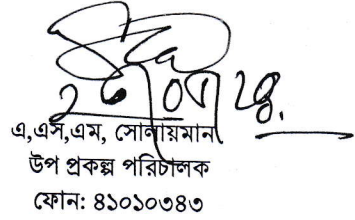 এ,এস,এম, সোলায়মান
উপ প্রকল্প পরিচালক
ফোন: ৪১০১০৩৪৩